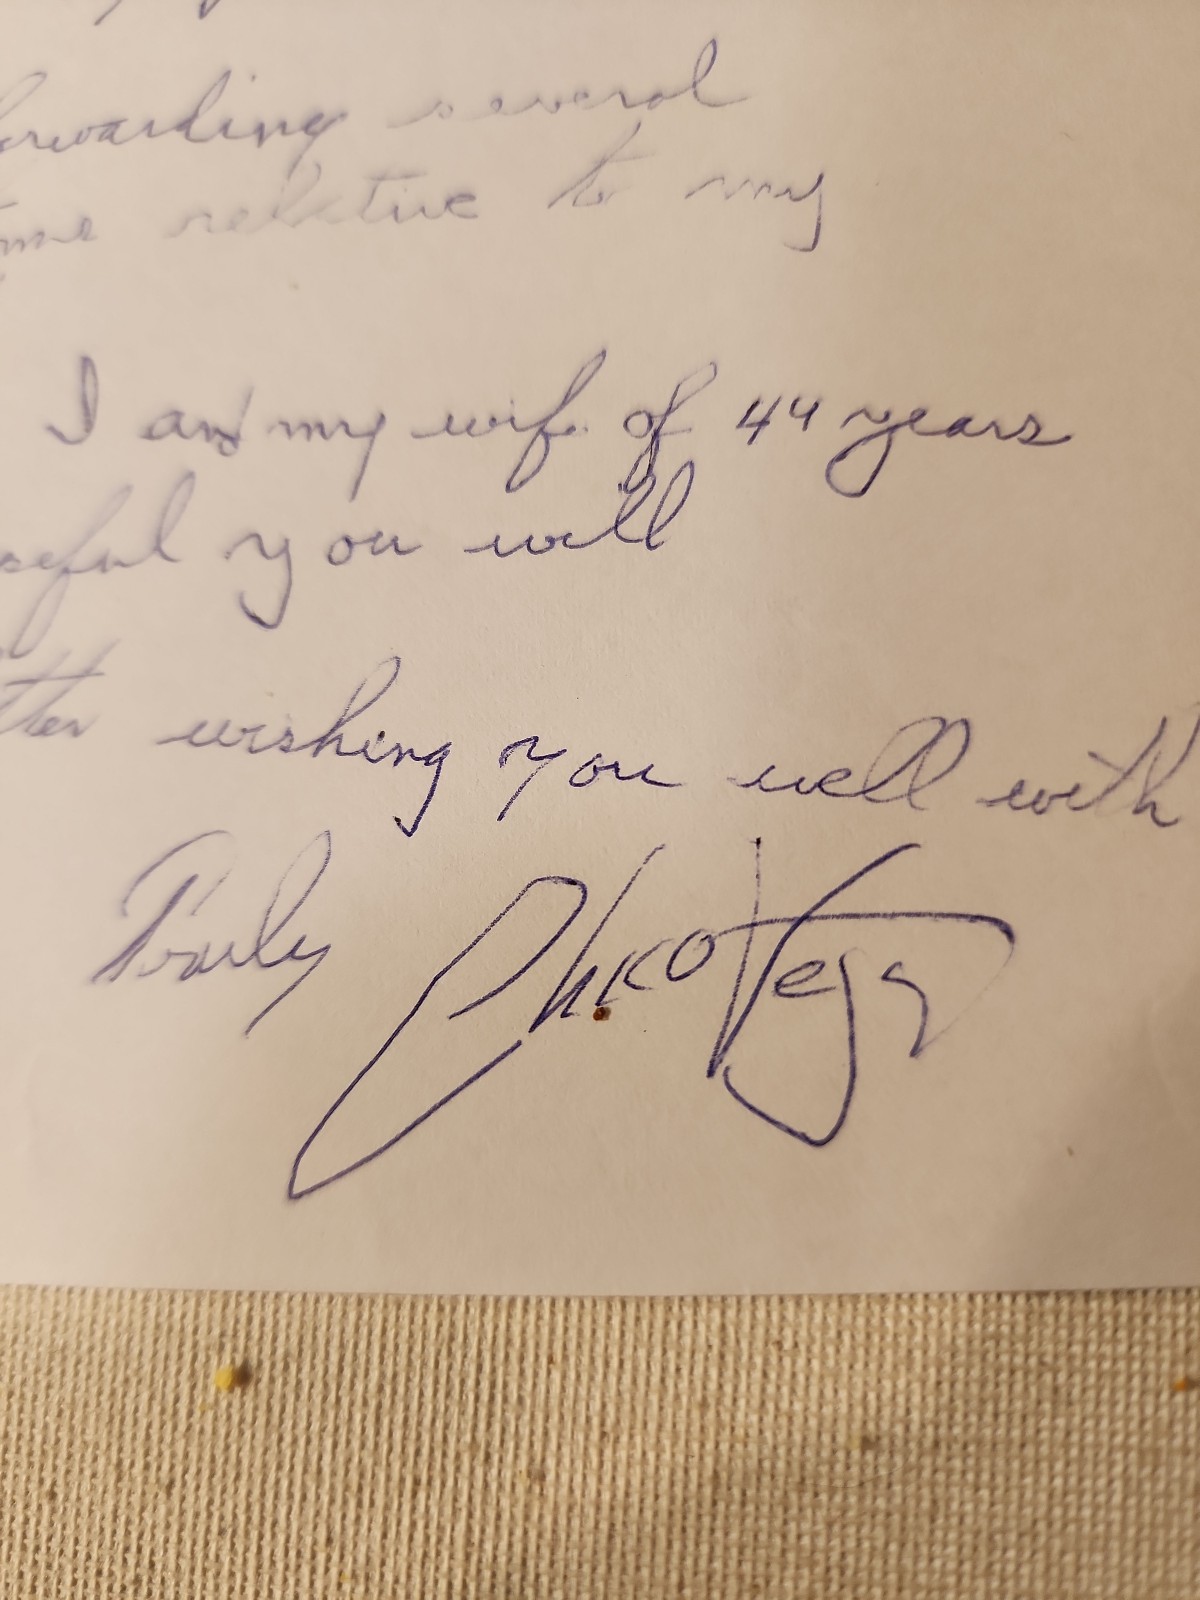 forwarding several
relative to my
I and my wife of 44 years
you will
wishing you well with
Truly Chico Vega